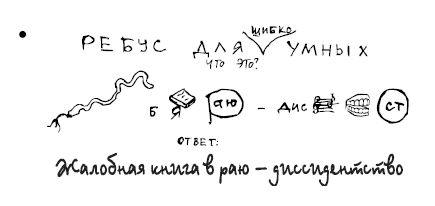 ШИБКО
РЕБУС ДЛЯ УМНЫХ
ЧТО ЭТО?
Б Я Р аю – ДИС СТ
ОТВЕТ:
Жалобная книга в раю – диссидентство